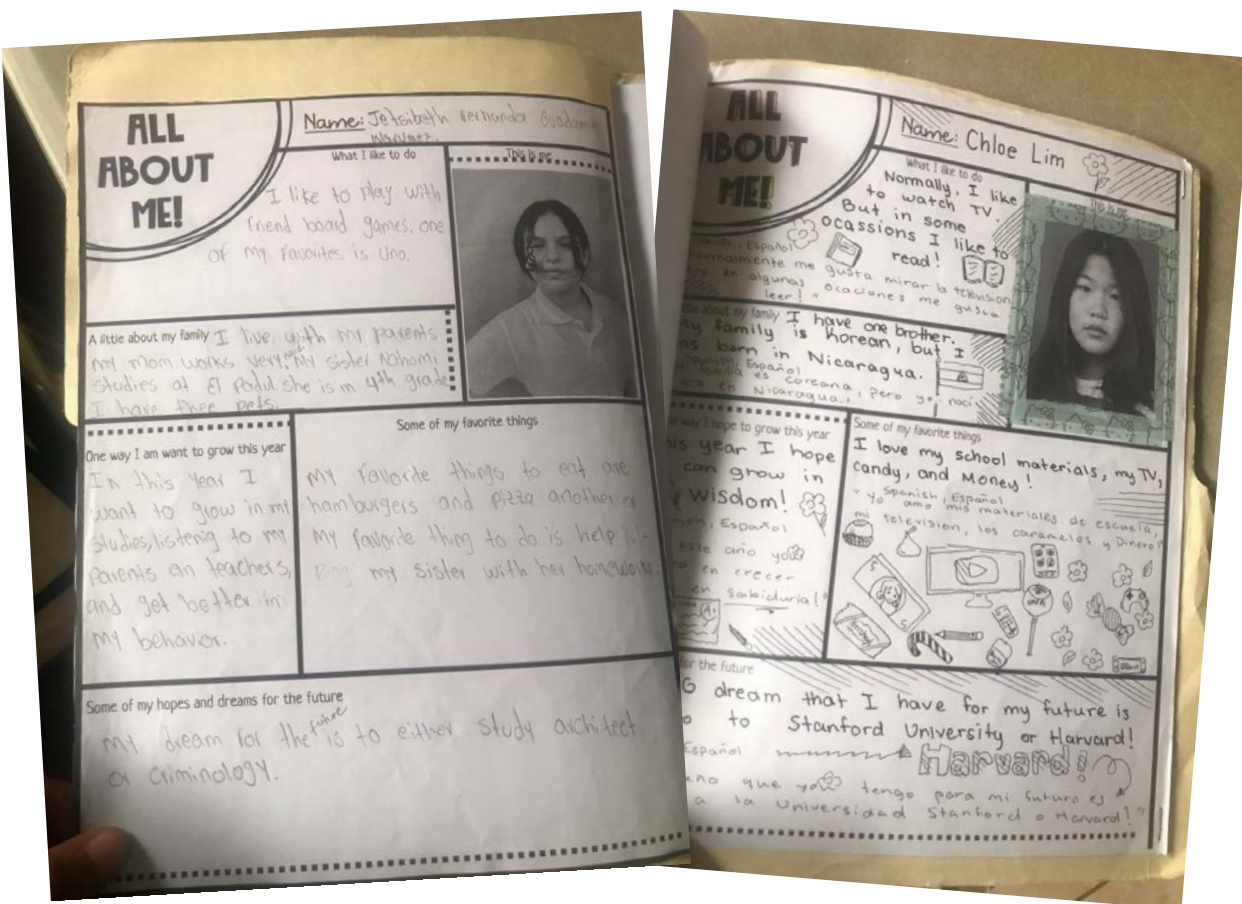 ALL
ABOUT
ME!
Name: Jetsibeth Fernanda
What I like to do
This is me
I like to play with
friend board games. one
of my favorites is Uno.
A little about my family I live with my parents
my mom works very. My sister Nahomi,
studies at El she is in 4th grade
I have thee pets.
One way I am want to grow this year
In this year I
want to grow in my
studies, listenig to my
parents an teachers,
and get better in
my behavor.
Some of my favorite things
my favorite things to eat are
hamburgers and pizza another of
my favorite thing to do is help
my sister with her homework.
Some of my hopes and dreams for the future
my dream for the future is to either study architect
or criminology.
ALL
ABOUT
ME!
Name: Chloe Lim
What I like to do
This is me
Normally, I like
to watch TV.
But in some
ocassions I like to
read!
Español
Normalmente me gusta mirar la television
en algunas ocaciones me gusta
leer!"
about my family I have one brother.
My family is Korean, but I
was born in Nicaragua.
Spanish, Español
familia es coreana, pero yo nací
en Nicaragua.
way I hope to grow this year
this year I hope
can grow in
wisdom!
Español
este año yo
en crecer
en sabiduria!"
A+
Some of my favorite things
I love my school materials, my TV,
candy, and Money!
Spanish, Español
"Yo amo mis materiales de escuela,
mi television, los caramelos y Dinero!"
for the future
dream that I have for my future is
to Stanford University or Harvard!
Español
Harvard!
que yo tengo para mi futuro es
a la Universidad Stanford o Harvard!"